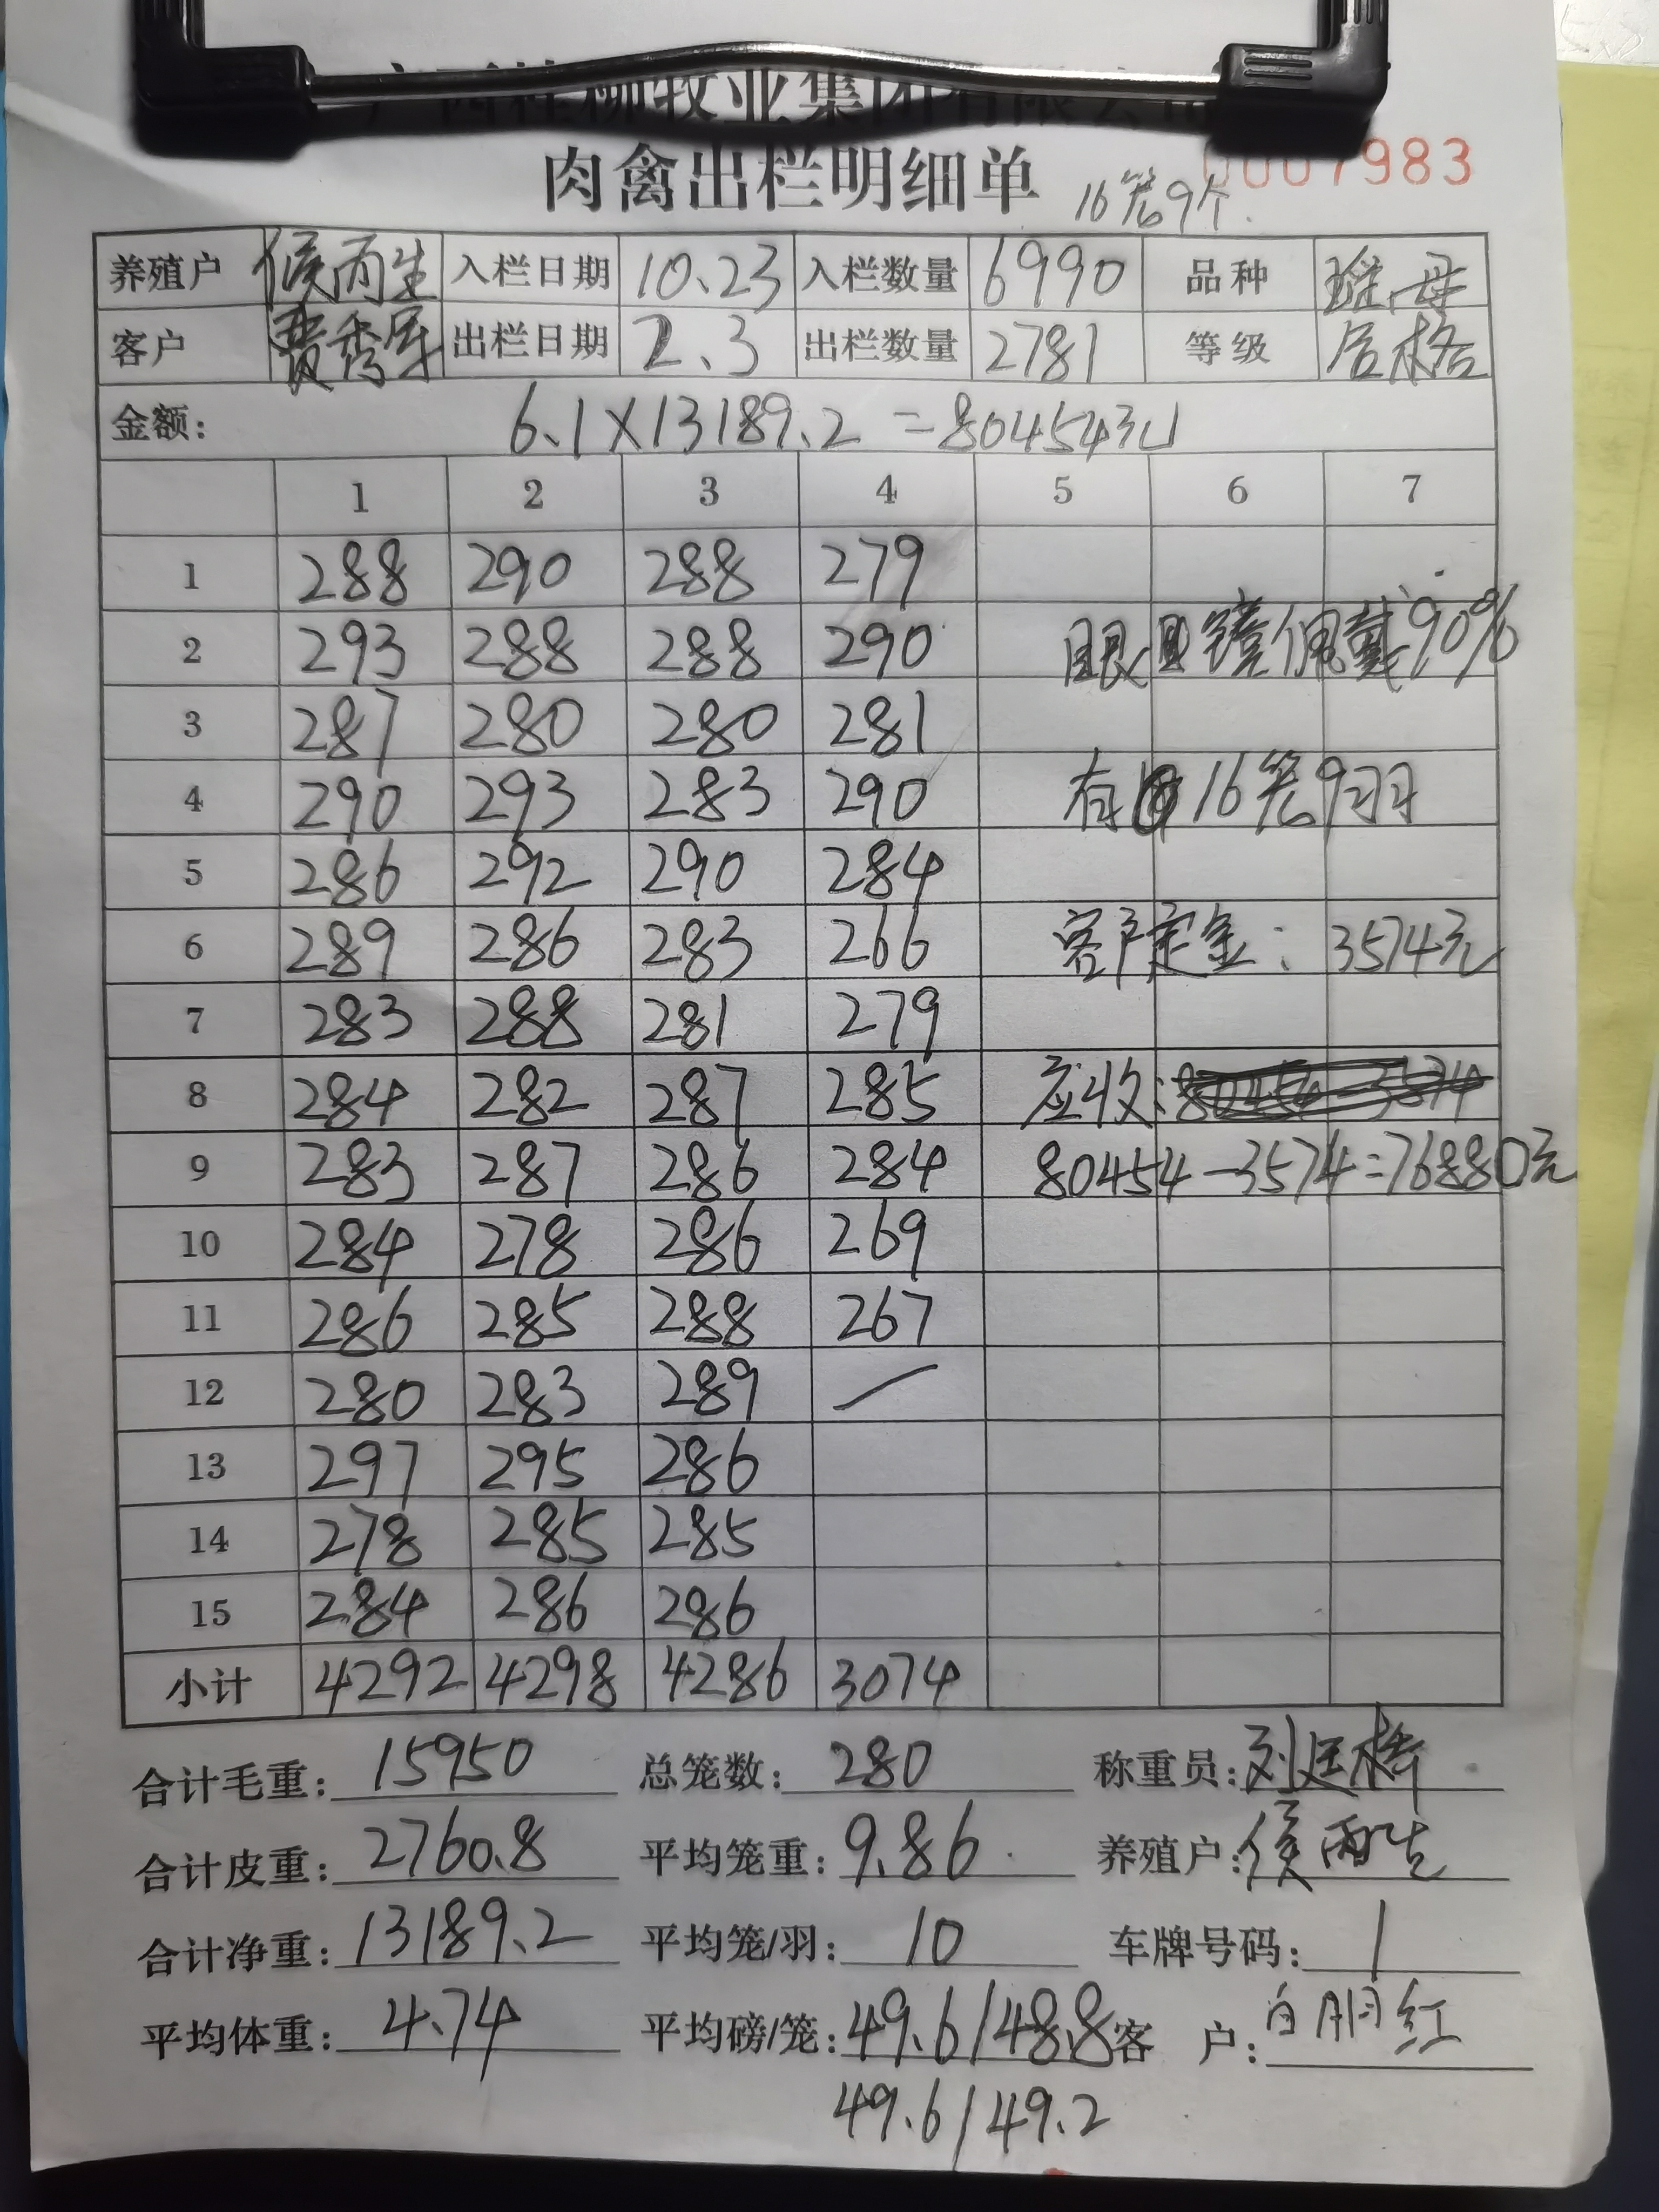 广西桂柳牧业集团有限公司
肉禽出栏明细单
0007983
16笼9个.
养殖户 侯丙生 入栏日期 10.23 入栏数量 6990 品种 瑶母
客户 费秀军 出栏日期 2.3 出栏数量 2781 等级 合格
金额: 6.1×13189.2=80454元
1 2 3 4 5 6 7
1 288 290 288 279
2 293 288 288 290 眼镜佩戴90%
3 287 280 280 281
4 290 293 283 290 有16笼9羽
5 286 292 290 284
6 289 286 283 266 客户定金: 3574元
7 283 288 281 279
8 284 282 287 285 应收:
9 283 287 286 284 80454-3574=76880元
10 284 278 286 269
11 286 285 288 267
12 280 283 289 /
13 297 295 286
14 278 285 285
15 284 286 286
小计 4292 4298 4286 3074
合计毛重: 15950 总笼数: 280 称重员: 刘廷
合计皮重: 2760.8 平均笼重: 9.86 养殖户: 侯丙生
合计净重: 13189.2 平均笼/羽: 10 车牌号码: 1
平均体重: 4.74 平均磅/笼: 49.6/48.8 客 户: 白朋红
49.6/49.2